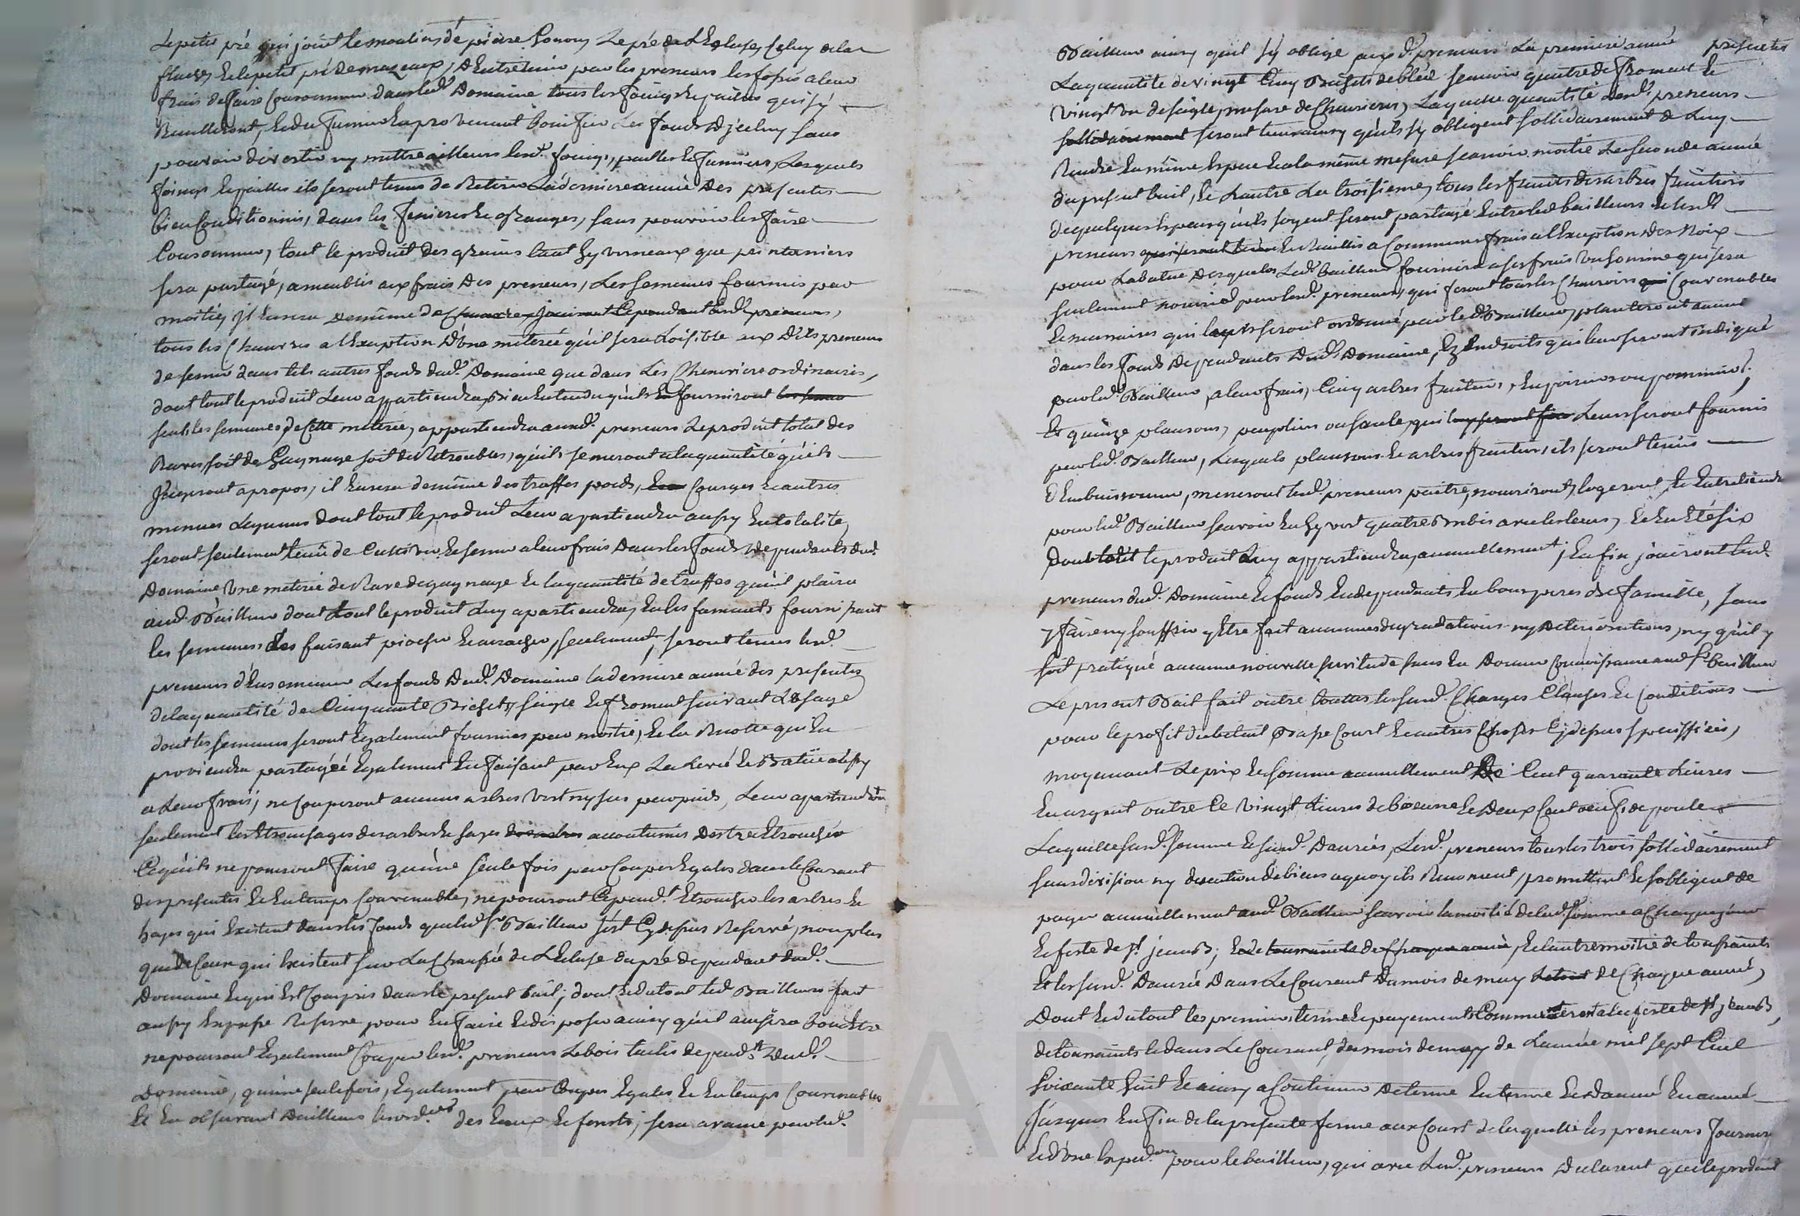 Le petit pré qui joint le moulin de pierre Le pré de L'Ecluse, celuy de la
et le petit pré de mazeaux, D'entretenir par les preneurs les fossés a leur
frais de faire Consommer dans led. Domaine tous les foings et pailles qui s'y
Recuilleront, et du fumier en provenant bonifier les fonds d'jceluy sans
pouvoir divertir ny mettre ailleurs lesd. foings, pailles et fumiers, Lesquels
foings et pailles ils seront tenus de Retirer La derniere année des presentes
bien Conditionnés, dans les fenieres et granges, sans pouvoir les faire
Consommer, tout le produit des grains tant hyverneaux que printaniers
sera partagé, ameublis aux frais des preneurs, Les semences fournies par
moitié, Il en sera de même de
tous les Chanvres a l'Exception D'une meterée qu'il sera Loisible aux dits preneurs
de semer dans tels autres fonds dud. Domaine que dans Les Cheneviere ordinaires,
dont tout le produit Leur appartiendra, Bien Entendu qu'ils fourniront
seuls les semences de Cette meterée, appartiendra auxd. preneurs Le produit total des
Raves soit de Gaynage soit de Retroubles, qu'ils semeront a la quantité qu'ils
Jugeront a propos, il en sera de même des truffes, pois, Courges et autres
menues Legumes dont tout le produit Leur apartiendra aussy En totalité,
seront seulement tenus de Cultiver et semer a leur frais Dans les fonds Dependants dud.
Domaine Une meterée de Rave de gaynage et la quantité de truffes qu'il plaira
aud. Bailleur dont tout le produit Luy apartiendra, En les fournissant
les semences Les faisant piocher et arracher, seulement, seront tenus lesd.
preneurs d'Ensemencer Les fonds Dud. Domaine la derniere année des presentes
de la quantité de Cinquante Bichets, seigle et froment suivant L'usage
dont les semences seront Egalement fournies par moitié, Et la Recolte qui En
proviendra partagée Egalement En faisant par Eux La Levée et Battue aussy
a Leur frais; ne Couperont aucuns arbres vert ny sec par pied, Leur apartiendra
seulement les Etronchages des arbres et hayes accoutumés D'estre Etronchés
Ce qu'ils ne pourront faire qu'une seule fois par Coupes Egales dans le Courant
des presentes Et En temps Convenable, ne pourront Cepend. Etroncher les arbres et
hayes qui Existent dans les fonds que led. Sr Bailleur s'est Cy dessus Reservé, non plus
que Ceux qui Existent sur La Chaussée de L'Ecluse du pré dependant dud.
Domaine Et qui Est Compris dans le present bail, dont du tout led. Bailleur fait
aussy Expresse Reserve pour En faire Et disposer ainsy qu'il avisera
ne pourront Egalement Couper lesd. preneurs Le bois taillis depend. Dud.
Domaine, qu'une seule fois, Egalement par Coupes Egales Et En temps Convenables
Et En observant D'ailleurs les ord.ces des Eaux et forests, sera avancé par led.
Bailleur ainsy qu'il s'y oblige auxd. preneurs La premiere année presentes
La quantité de vingt Cinq Bichets de bled scavoir quatre de froment Et
Vingt un de seigle, mesure de Charrieres, La quelle quantité Lesd. preneurs
seront tenus ainsy qu'ils s'y obligent sollidairement de Luy
Rendre En même Espece Et a la même mesure scavoir moitié La seconde année
du present bail, Et L'autre La troisieme, tous les fruits des arbres fruitiers
de quelques Especes qu'ils soyent seront partagé Entre led bailleur et lesd.
preneurs Et Cuillis a Communs frais a l'Exception des Noix
pour La battue Desqueles Led. bailleur fournira a ses frais Un homme qui sera
seulement nourri par lesd. preneurs, qui feront tous les Charrois Convenables
Et necessaires qui Leurs seront ordonné par led. Bailleur, planteront annuel
dans les fonds Dependants Dud. Domaine, Ez Endroits qui leur seront indiqué
par led. Bailleur, a leur frais, Cinq arbres fruitiers, En poiriers ou pommiers,
Et quinze plansons, peupliers ou saule, qui Leurs seront fournis
par led. Bailleur, Lesquels plansons et arbres fruitiers, ils seront tenus
D'Embuissonner, meneront lesd. preneurs paitre, nouriront, logeront, Et Entretiendr
pour led. Bailleur scavoir En hyvert quatre Brebis avec les leurs, Et En Eté six
Dont tout le produit Luy appartiendra, annuellement, Enfin jouiront lesd.
preneurs Dud. Domaine Et fonds En dependants En bons peres de famille, sans
y faire ny souffrir y Etre fait aucunes degradations ny Deteriorations, ny qu'il y
soit pratiqué aucune nouvelle servitude sans En Donner Connaissance aud. Sr bailleur
Le present Bail fait outre toutes les susd. Charges Clauses Et Conditions
pour le profit du betail Basse Court Et autres Choses Cy dessus specifiées,
moyenant Le prix Et somme annuellement De Cent quarante Livres
En argent outre Ce vingt Livres de beurre Et Deux Cent oeufs de poule
Laquelle susd. somme Et susd. Danrées, Lesd. preneurs tous les trois sollidairement
sans division ny discution de biens a quoy ils Renoncent, promettent Et s'obligent de
payer annuellement aud. Bailleur scavoir la moitié de lad. somme a Chaque jour
Et feste de St jean Bte, Et l'autre moitié de toussaints
Et les susd. Danrée Dans Le Courant Du mois de may de Chaque année,
Dont Et du tout les premiers termes Et payements Commenceront a la feste de St jean Bte,
de toussaints Et dans Le Courant du mois de may de L'année mil sept Cent
soixante huit Et ainsy a Continuer De terme En terme Et D'année En année
Jusques En fin de la presente ferme au Court de laquelle les preneurs fourniro
Et d'une Exped.on pour le bailleur, qui avec Lesd. preneurs Declarent que le produit